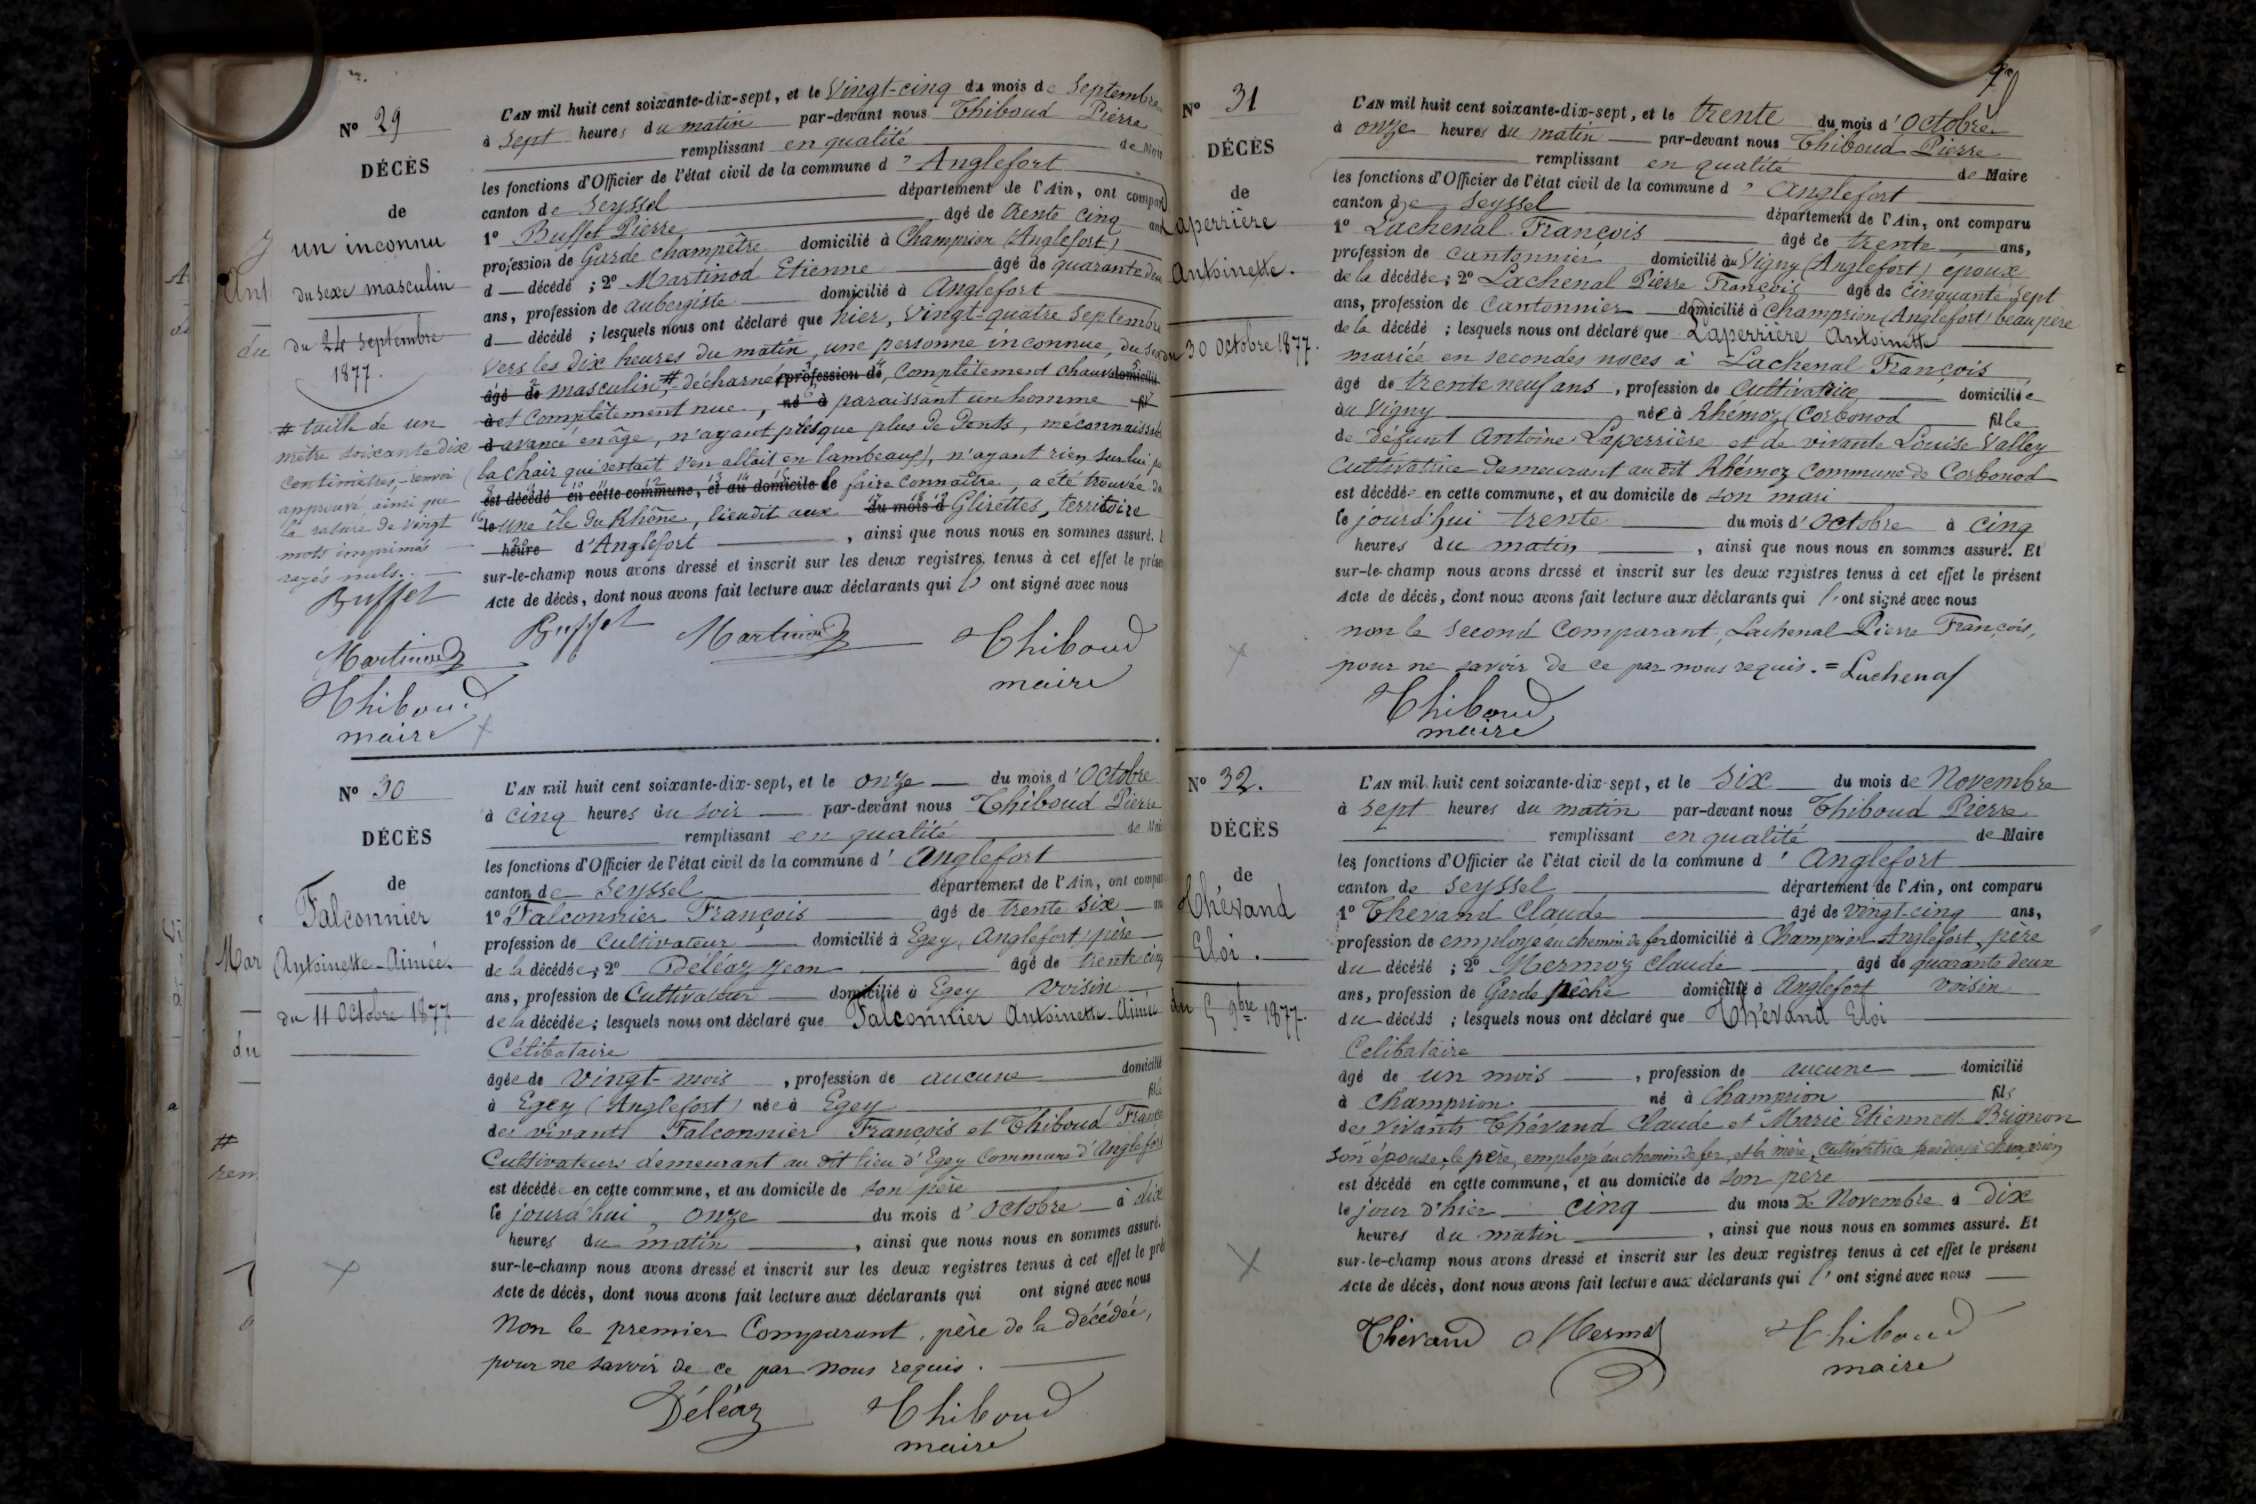 N° 29
DÉCÈS
de
un inconnu
du sexe masculin
du 24 Septembre
1877.
# taille de un
mètre soixante dix
centimètres, renvoi
approuvé ainsi que
la rature de vingt
mots imprimés
rayés nuls.
Buffet
Martinod
Thiboud
maire
L'AN mil huit cent soixante-dix-sept, et le Vingt-cinq du mois de Septembre
à sept heures du matin par-devant nous Thiboud Pierre
remplissant en qualité de
les fonctions d'Officier de l'état civil de la commune d'Anglefort
canton de Seyssel département de l'Ain, ont
1° Buffet Pierre âgé de trente cinq
profession de Garde champêtre domicilié à Champrion (Anglefort)
d décédé ; 2° Martinod Etienne âgé de quarante deux
ans, profession de aubergiste domicilié à Anglefort
d décédé ; lesquels nous ont déclaré que hier, vingt-quatre Septembre
vers les dix heures du matin, une personne inconnue, du sexe
âgé de masculin, # décharnée profession de, complètement chauve domicilié
à et complètement nue, né à paraissant un homme fil
d avancé en âge, n'ayant presque plus de dents, méconnaissable
(la chair qui restait s'en allait en lambeaux), n'ayant rien sur lui
est décédé en cette commune, et au domicile de le faire connaître, a été trouvée
le une île du Rhône, lieudit aux du mois d Glirettes, territoire
heure d'Anglefort, ainsi que nous nous en sommes assuré.
sur-le-champ nous avons dressé et inscrit sur les deux registres tenus à cet effet le
Acte de décès, dont nous avons fait lecture aux déclarants qui l' ont signé avec nous
Buffet Martinod Thiboud
maire
N° 30
DÉCÈS
de
Falconnier
Antoinette-Aimée.
du 11 Octobre 1877
L'AN mil huit cent soixante-dix-sept, et le onze du mois d'Octobre
à cinq heures du soir par-devant nous Thiboud Pierre
remplissant en qualité de
les fonctions d'Officier de l'état civil de la commune d'Anglefort
canton de Seyssel département de l'Ain, ont
1° Falconnier François âgé de trente six
profession de cultivateur domicilié à Egey, Anglefort, père
de la décédée ; 2° Déléaz Jean âgé de trente cinq
ans, profession de Cultivateur domicilié à Egey voisin
de la décédée ; lesquels nous ont déclaré que Falconnier Antoinette-Aimée
Célibataire
âgée de vingt-mois, profession de aucune domicilié
à Egey (Anglefort) née à Egey
des vivants Falconnier François et Thiboud
Cultivateurs demeurant au dit lieu d'Egey Commune d'Anglefort
est décédée en cette commune, et au domicile de son père
le jourd'hui onze du mois d'Octobre à dix
heures du matin, ainsi que nous nous en sommes assuré.
sur-le-champ nous avons dressé et inscrit sur les deux registres tenus à cet effet le
Acte de décès, dont nous avons fait lecture aux déclarants qui ont signé avec nous
Non le premier Comparant, père de la décédée,
pour ne savoir de ce par nous requis.
Déléaz Thiboud
maire
N° 31
DÉCÈS
de
Laperrière
Antoinette.
du 30 Octobre 1877.
L'AN mil huit cent soixante-dix-sept, et le trente du mois d'Octobre
à onze heures du matin par-devant nous Thiboud Pierre
remplissant en qualité de Maire
les fonctions d'Officier de l'état civil de la commune d'Anglefort
canton de Seyssel département de l'Ain, ont comparu
1° Lachenal François âgé de trente ans,
profession de cantonnier domicilié au Vigny (Anglefort) époux
de la décédée ; 2° Lachenal Pierre François âgé de cinquante sept
ans, profession de Cantonnier domicilié à Champrion (Anglefort) beau père
de la décédé ; lesquels nous ont déclaré que Laperrière Antoinette
mariée en secondes noces à Lachenal François
âgé de trente neuf ans, profession de Cultivatrice domiciliée
au Vigny née à Rhémoz (Corbonod fille
de défunt Antoine Laperrière et de vivante Louise Valley
Cultivatrice demeurant au dit Rhémoz Commune de Corbonod
est décédée en cette commune, et au domicile de son mari
le jourd'hui trente du mois d'Octobre à cinq
heures du matin, ainsi que nous nous en sommes assuré. Et
sur-le-champ nous avons dressé et inscrit sur les deux registres tenus à cet effet le présent
Acte de décès, dont nous avons fait lecture aux déclarants qui l' ont signé avec nous
non le second Comparant, Lachenal Pierre François,
pour ne savoir de ce par nous requis. = Lachenal
Thiboud
maire
N° 32.
DÉCÈS
de
Thévand
Eloi.
du 5 9bre 1877.
L'AN mil huit cent soixante-dix-sept, et le Six du mois de Novembre
à sept heures du matin par-devant nous Thiboud Pierre
remplissant en qualité de Maire
les fonctions d'Officier de l'état civil de la commune d'Anglefort
canton de Seyssel département de l'Ain, ont comparu
1° Thevand Claude âgé de vingt-cinq ans,
profession de employé au chemin de fer domicilié à Champrion Anglefort, père
du décédé ; 2° Mermoz Claude âgé de quarante deux
ans, profession de Garde pêche domicilié à Anglefort voisin
du décédé ; lesquels nous ont déclaré que Thévand Eloi
Celibataire
âgé de un mois, profession de aucune domicilié
à Champrion né à Champrion fils
des vivants Thévand Claude et Marie Etiennette Brignon
son épouse, le père, employé au chemin de fer, et la mère, cultivatrice Champrion
est décédé en cette commune, et au domicile de son père
le jour d'hier cinq du mois de Novembre à dix
heures du matin, ainsi que nous nous en sommes assuré. Et
sur-le-champ nous avons dressé et inscrit sur les deux registres tenus à cet effet le présent
Acte de décès, dont nous avons fait lecture aux déclarants qui l' ont signé avec nous
Thévand Mermoz Thiboud
maire